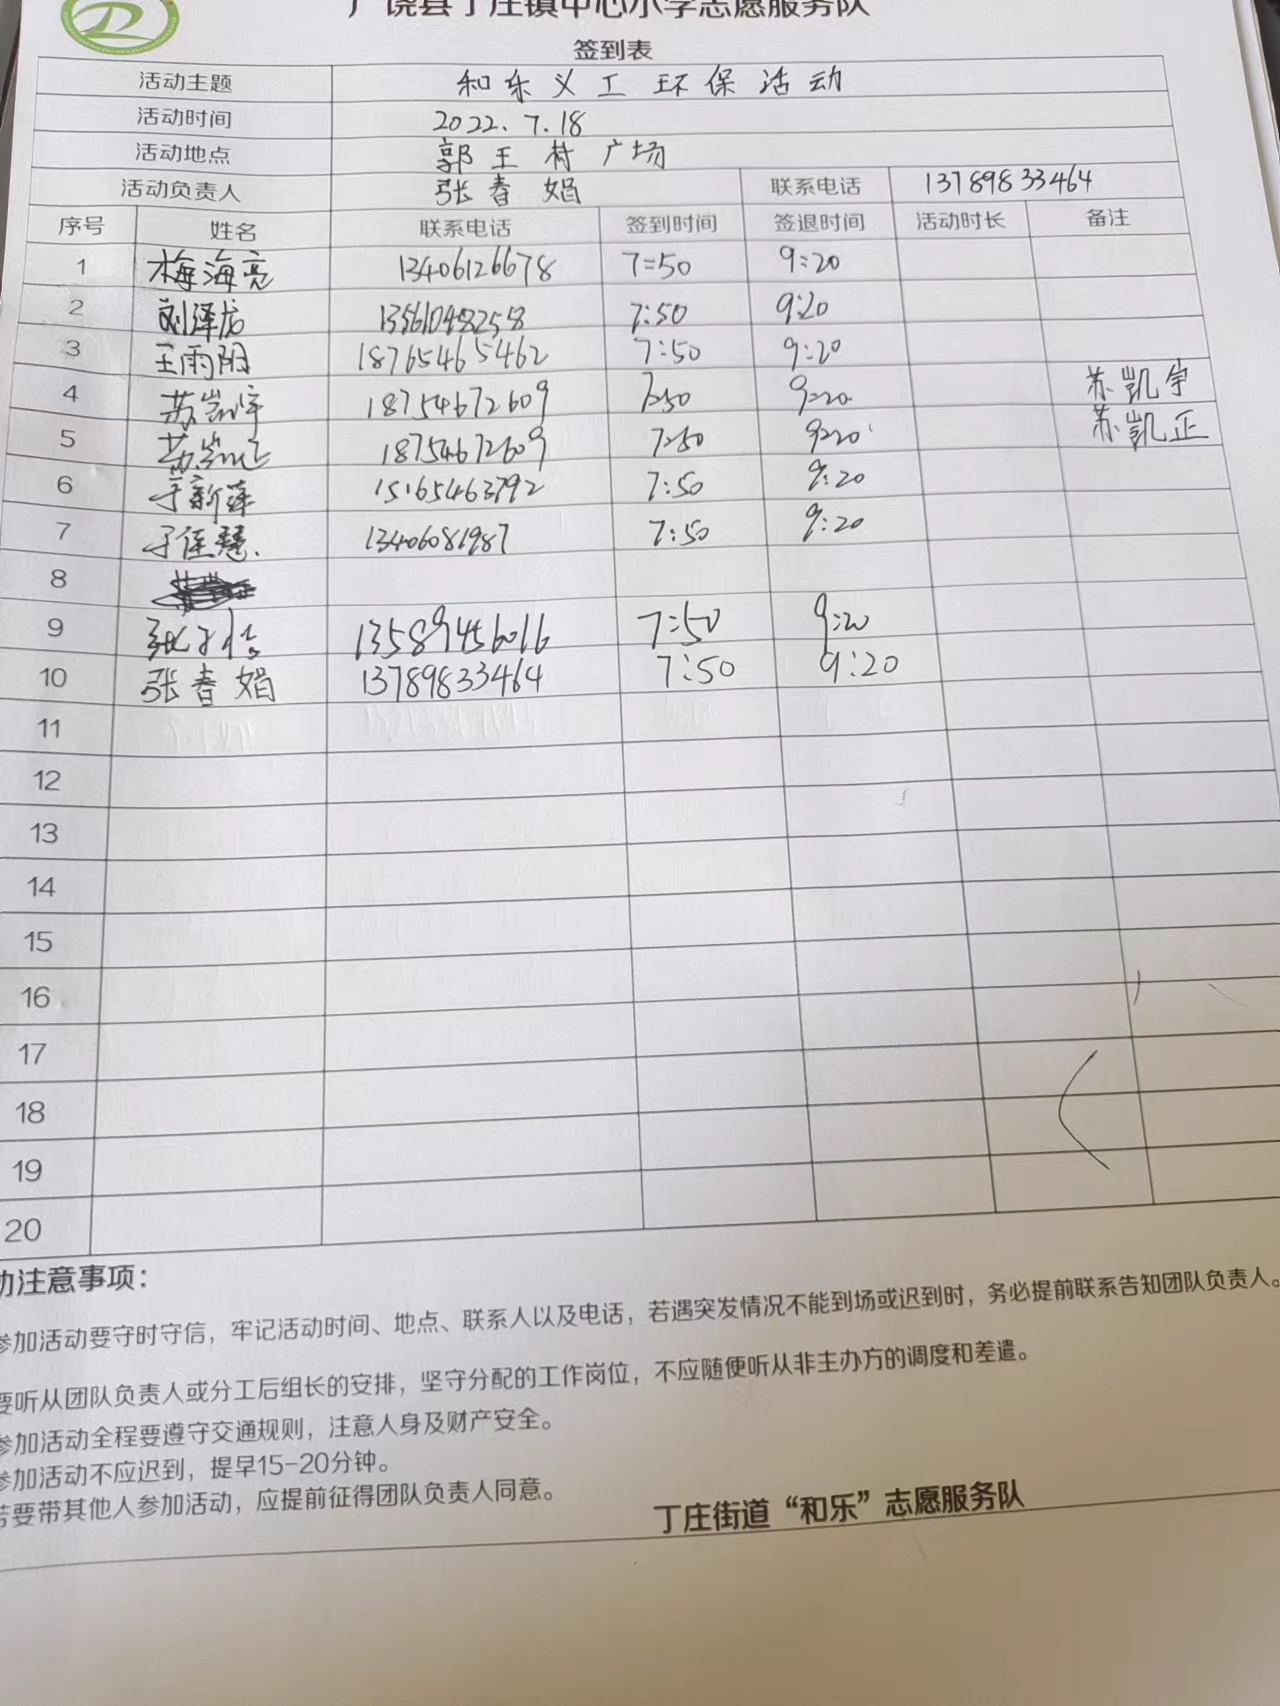 广饶县丁庄镇中心小学志愿服务队
签到表
活动主题 和乐义工环保活动
活动时间 2022.7.18
活动地点 郭王村广场
活动负责人 张春娟 联系电话 13789833464
序号 姓名 联系电话 签到时间 签退时间 活动时长 备注
1 梅海亮 13406126678 7:50 9:20
2 刘泽龙 13561048258 7:50 9:20
3 王雨阳 18765465462 7:50 9:20
4 苏凯宇 18754672609 7:50 9:20 苏凯宇
5 苏凯正 18754672609 7:50 9:20 苏凯正
6 于新萍 15165463792 7:50 9:20
7 于佳慧. 13406081987 7:50 9:20
8
9 13589456016 7:50 9:20
10 张春娟 13789833464 7:50 9:20
11
12
13
14
15
16
17
18
19
20
动注意事项：
参加活动要守时守信，牢记活动时间、地点、联系人以及电话，若遇突发情况不能到场或迟到时，务必提前联系告知团队负责人。
要听从团队负责人或分工后组长的安排，坚守分配的工作岗位，不应随便听从非主办方的调度和差遣。
参加活动全程要遵守交通规则，注意人身及财产安全。
参加活动不应迟到，提早15-20分钟。
若要带其他人参加活动，应提前征得团队负责人同意。
丁庄街道“和乐”志愿服务队